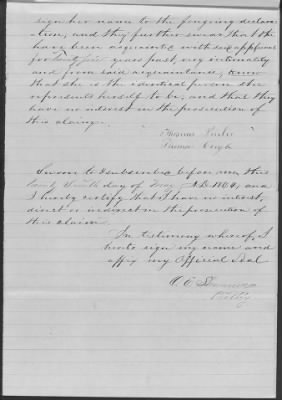 sign her name to the foregoing declara
tion, and they further swear that the
have been acquainted with said applicant
for twenty five years past, very intimately
and from said acquaintance, know
that she is the identical person she
represents himself to be, and that they
have no interest in the prosecution of
this claim.
Thomas
Sworn to & subscribed before me this
day of May A.D. 1864, and
I hereby certify that I have no interest,
direct or indirect in the prosecution of
this claim.
In testimony whereof, I
hereto sign my name and
affix my Official Seal